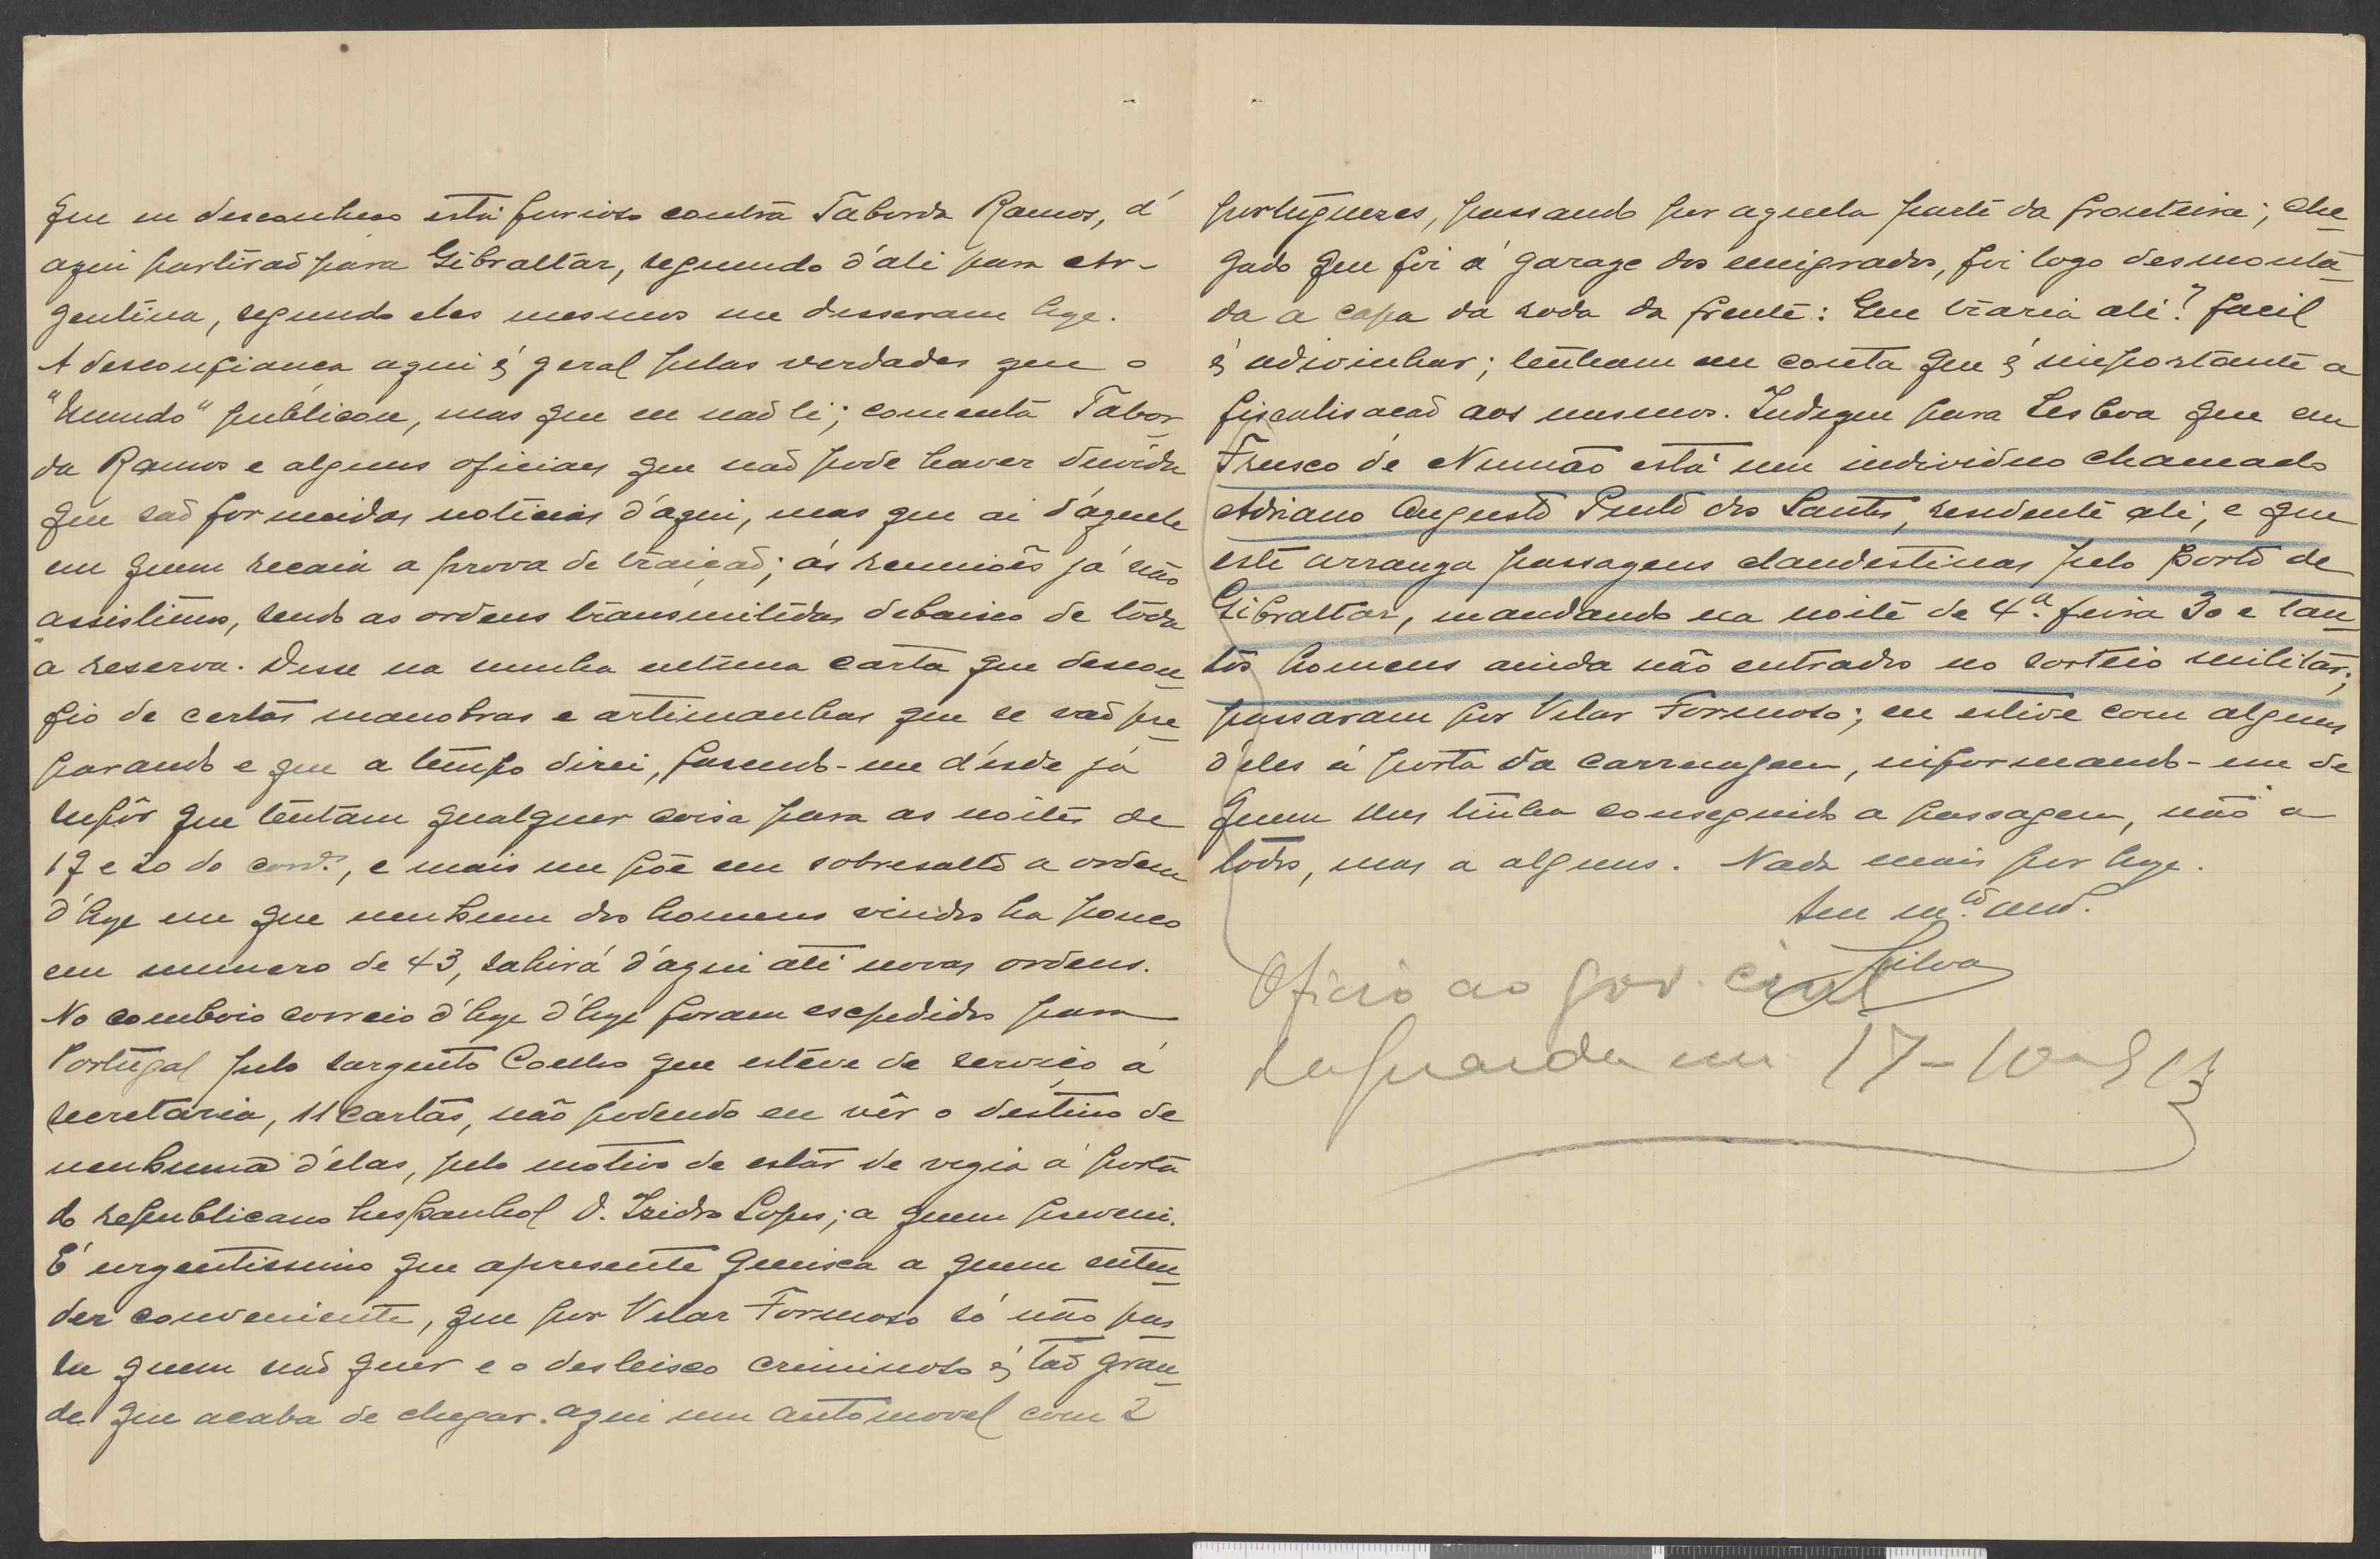 que eu desconheço está furioso contra Taborda Ramos, d'
aqui partiraõ para Gibraltar, seguindo d'ali para Ar-
gentina, segundo eles mesmos me disseram hoje.
A desconfiança aqui é geral pelas verdades que o
"Mundo" publicou, mas que eu naõ li; comenta Tabor
da Ramos e alguns oficiaes que naõ pode haver duvida
que saõ fornecidas noticias d'aqui, mas que ai d'aquele
em quem recaia a prova de traiçaõ; ás reuniões já não
assistimos, sendo as ordens transmitidas debaixo de toda
a reserva. Disse na minha ultima carta que descon
fio de certas manobras e artimanhas que se vaõ pre
parando e que a tempo direi, fasendo-me d'esde já
supôr que tentam qualquer coisa para as noites de
17 e 20 do corr.te, e mais me põe em sobresalto a ordem
d'hoje em que nenhum dos homens vindos ha pouco
em numero de 43, sahirá d'aqui até novas ordens.
No comboio correio d'hoje d'hoje foram expedidos para
Portugal pelo sargento Coelho que estêve de serviço á
secretaria, 11 cartas, não podendo eu vêr o destino de
nenhuma d'elas, pelo motivo de estar de vegia á porta
do republicano hespanhol D. Izidro Lopes; a quem preveni.
É urgentissimo que apresente queixa a quem enten
der conveniente, que por Vilar Formoso só não pas
sa quem naõ quer e o desleixo criminoso é taõ gran
de que acaba de chegar aqui um automovel com 2
portuguezes, passando por aquela parte da fronteira; che
gado que foi á garage dos emigrados, foi logo desmonta
da a capa da roda da frente: Que traria ali? facil
é adivinhar; tenham em conta que é importante a
fiscalisacaõ aos mesmos. Indique para Lisboa que em
Freixo de Numão está um individuo chamado
Adriano Augusto Pinto dos Santos, residente ali, e que
este arranja passagens clandestinas pelo porto de
Gibraltar, mandando na noite de 4.ª feira 30 e tan
tos homens ainda não entrados no sorteio militar;
passaram por Vilar Formoso; eu estive com alguns
d'eles á porta da carruagem, informando-me de
quem lhes tinha conseguido a passagem, não a
todos, mas a alguns. Nada mais por hoje.
Seu m.to am.o
Silva
Oficio ao gov. civil
da Guarda em 17-10-913